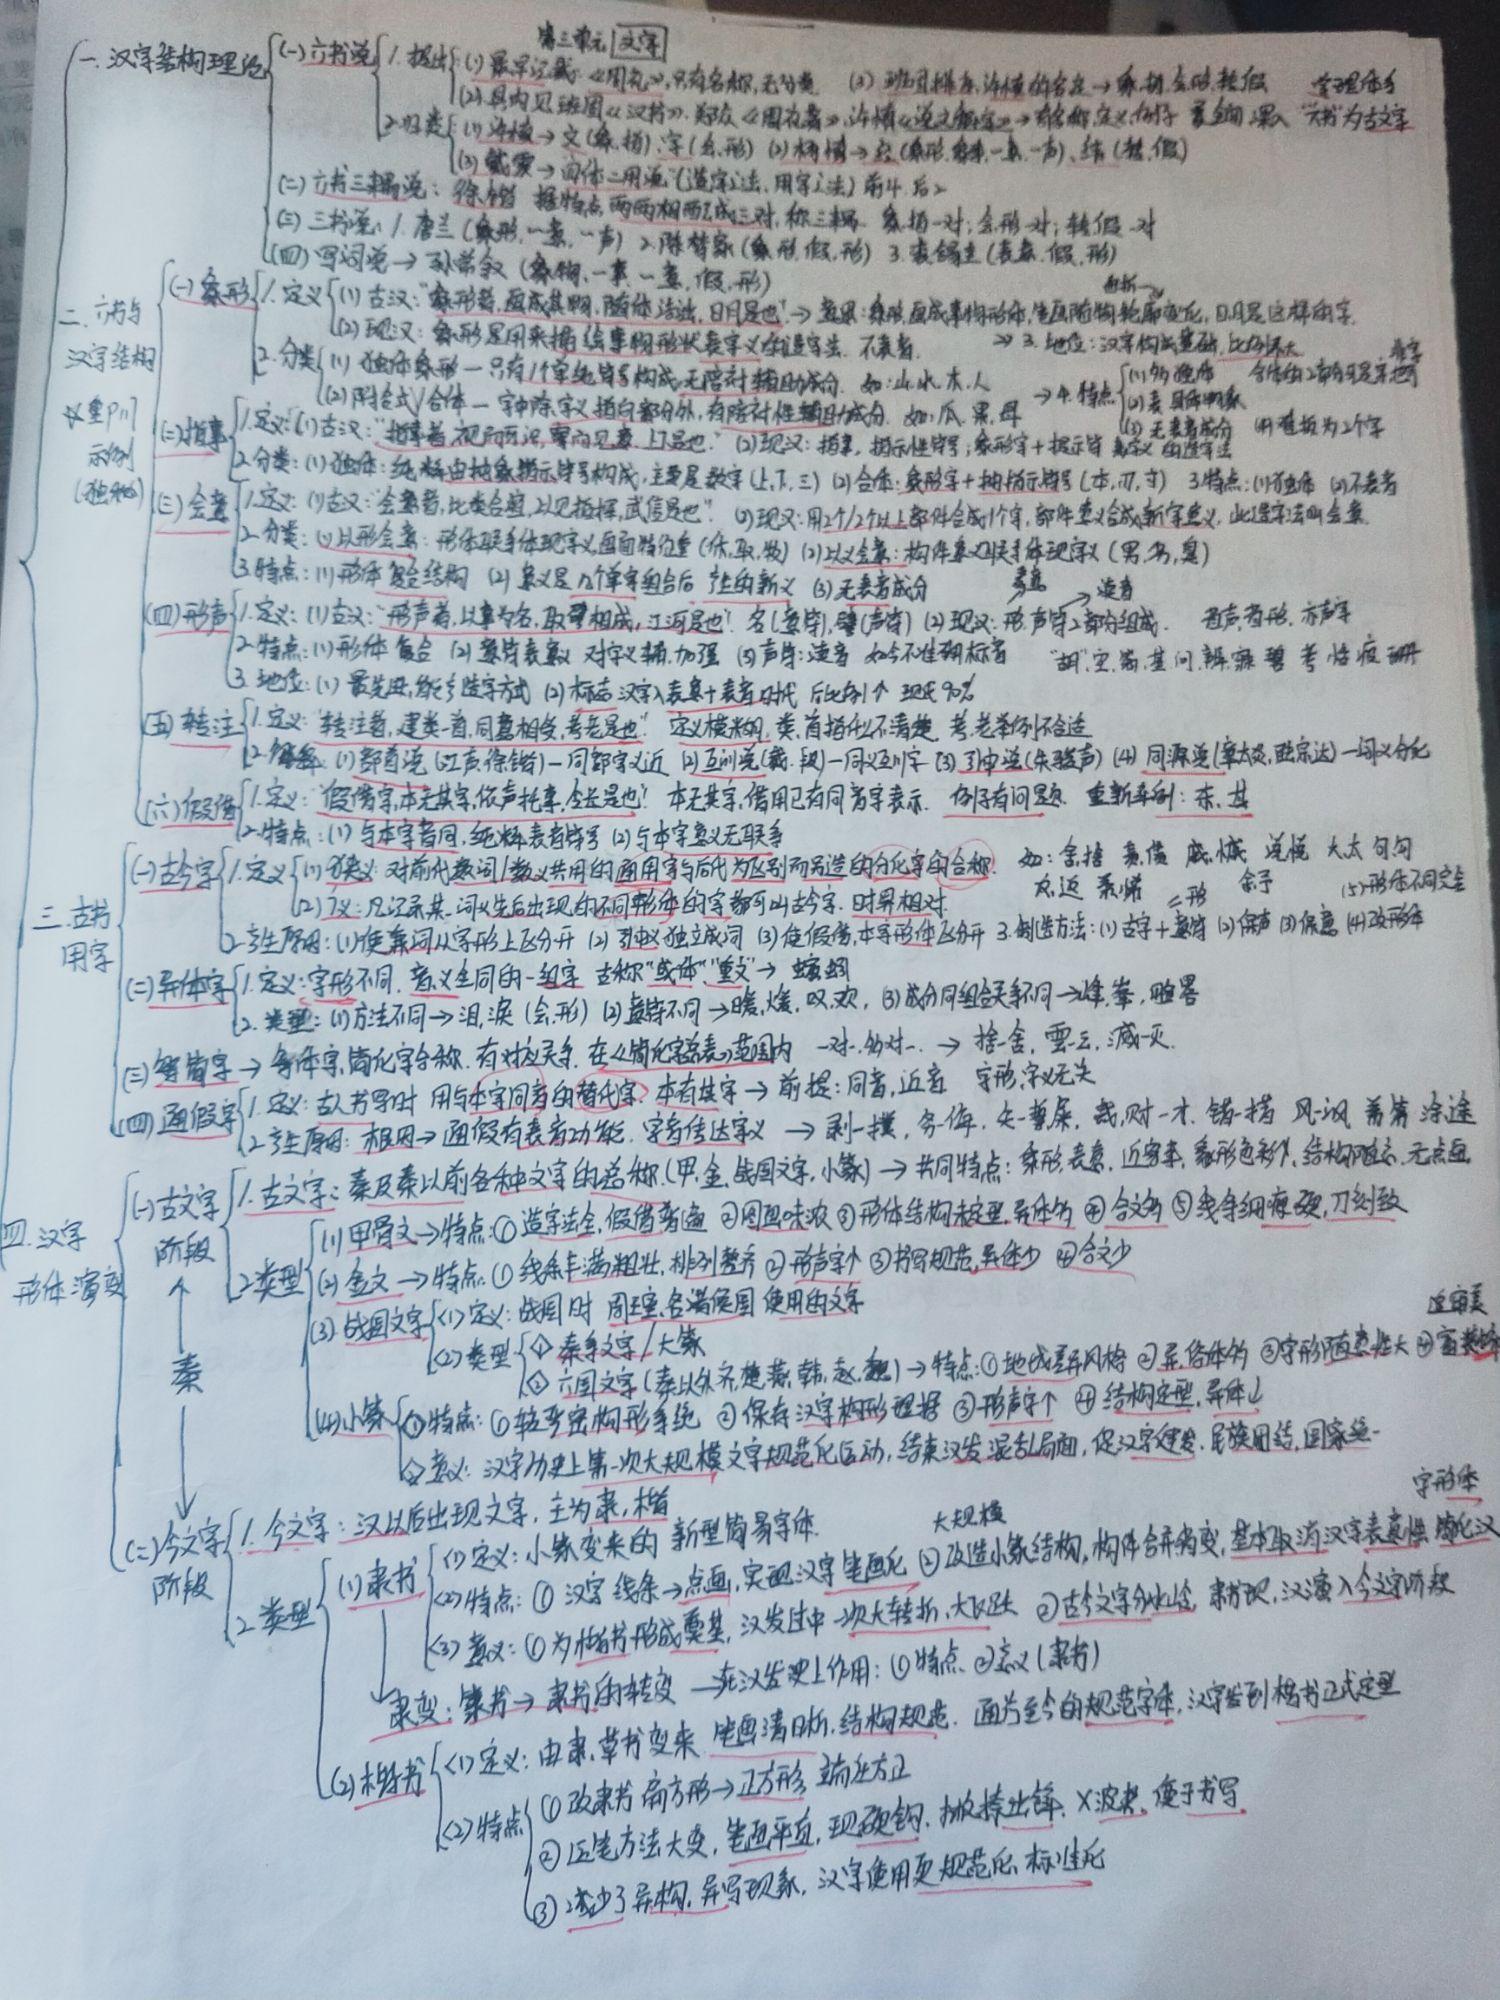 第三单元 文字
一. 汉字结构理论
(一) 六书说
1. 提出
(1) 最早记载:《周礼》,只有名称,无分类
(2) 具内见班固《汉书》,郑众《周礼》,许慎《说文解字》→有名称,定义,例子
"六书"为古文字
2. 归类
(1) 许慎→文(象.指).字(会.形)
(3) 戴震→四体二用说(造字之法.用字之法) 前4.后2
(二) 六书三耦说: 徐锴 据特点.两两相配成三对,称三耦. 象指一对;会.形一对;转假一对
(三) 三书说: 1. 唐兰(象形.一意.一声) 2. 陈梦家(象形.假.形) 3. 裘锡圭(表意.假.形)
(四) 写词说→孙常叙(象物.一事.一意.假.形)
二. 六书与汉字结构
☆重中
示例
(一) 象形
1. 定义
(1) 古汉:"象形者,画成其物,随体诘诎,日月是也."
(2) 现汉:象形是用来描绘事物形状表字义的造字法. 不表音.
3. 地位:汉字构成基础,比例不大
2. 分类
(1) 独体象形—只有1个字纯符号构成,无陪衬辅助成分. 如:山.水.木.人
(2) 附台式/合体—字中除字义指向部分外,有陪衬性辅助成分. 如:瓜.果.母
4. 特点
(1) 多独体
(2) 表具体物象
(3) 无表音成分
(4) 难拆为2个字
(二) 指事
1. 定义:(1) 古汉:"指事者,视而可识,察而见意,上下是也." (2) 现汉:指事,指示性符号;象形字+提示符 表字义的造字法
2. 分类:(1) 独体:纯粹由抽象指示符号构成,主要是数字(上.下.三) (2) 合体:象形字+抽指示符号(本.刃.寸) 3. 特点:(1) 独体 (2) 不表音
(三) 会意
1. 定义:(1) 古汉:"会意者,比类合谊,以见指㧑,武信是也." (2) 现汉:用2个/2个以上部件合成1个字,部件意义合成新字意义,此造字法叫会意.
2. 分类:(1) 以形会意:形体联系体现字义,画面特征重(休,取,牧) (2) 以义会意:构件意义联系体现字义(男.劣.臭)
3. 特点:(1) 形体复合结构 (2) 意义是几个单字组合后产生的新义 (3) 无表音成分
(四) 形声
1. 定义:(1) 古汉:"形声者,以事为名,取譬相成,江河是也." 名(意符),譬(声符) (2) 现汉:形.声符2部分组成. 亦声字
表意
读音
2. 特点:(1) 形体复合 (2) 意符表意义 对字义辅.加强 (3) 声符:读音 如今不准确标音
3. 地位:(1) 最先进.能产造字方式 (2) 标志汉字入表意+表音时代 后比例↑ 现氏90%
(五) 转注
1. 定义:"转注者,建类一首,同意相受,考老是也." 定义模糊,类.首指什么不清楚 考.老举例不合适
2. 解释 (1) 部首说(江声.徐锴)—同部字义近 (2) 互训说(戴.段)—同义互训字 (3) 引申说(朱骏声) (4) 同源说(章太炎,陆宗达)—词义分化
(六) 假借
1. 定义:"假借字,本无其字,依声托事,令长是也." 本无其字,借用已有同音字表示. 例子有问题. 重新举例:东.其
2. 特点:(1) 与本字音同,纯粹表音符号 (2) 与本字意义无联系
三. 古书用字
(一) 古今字
1. 定义
(1) 狭义:对前代数词/数义共用的通用字与后代为区别而另造的分化字的合称. 如:舍捨 责债 戚.慽 说悦 大太 句勾
(2) 广义:凡记录某词义先后出现的不同形体的字都可叫古今字. 时界相对. 余予
2. 产生原因:(1) 使兼词从字形上区分开 (2) 引申义独立成词 (3) 使假借,本字形体区分开 3. 创造方法:(1) 古字+意符 (2) 保声 (3) 保意 (4) 改形体
(5) 形体不同完全
(二) 异体字
1. 定义:字形不同,音义全同的一组字 古称"或体""重文"
2. 类型:(1) 方法不同→泪,淚(会.形) (2) 意符不同→暖,煖,叹,欢, (3) 成分同组合关系不同→峰,峯
(三) 繁简字→繁体字,简化字合称,有对应关系,在《简化字总表》范围内 一对一.多对一.→捨-舍,雲-云,滅-灭.
(四) 通假字
1. 定义:古人书写时 用与本字同音的替代字. 本有其字→前提:同音,近音 字形,字义无关
2. 产生原因:根因→通假有表音功能. 字音传达字义→剥-撲,务-侮,矢-誓 涂途
四. 汉字形体演变
(一) 古文字阶段
1. 古文字:秦及秦以前各种文字的总称.(甲.金.战国文字,小篆)→共同特点:象形.表意. 无点画
2. 类型
(1) 甲骨文→特点:① 造字法全,假借普遍 ② 图画味浓 ③ 形体结构未定型,异体多 ④ 合文多 ⑤ 线条细瘦硬,刀刻致
(2) 金文→特点:① 线条丰满粗壮,排列整齐 ② 形声字↑ ③ 书写规范,异体少 ④ 合文少
(3) 战国文字
<1> 定义:战国时 周王室,各诸侯国使用的文字
<2> 类型
① 秦系文字/大篆
② 六国文字(秦以外齐.楚.燕.韩.赵.魏)→特点:① 地域差异风格 ② 异.俗体多 ③ 字形随意性大
追审美
(4) 小篆
<1> 特点:① 较严密构形系统 ② 保存汉字构形理据 ③ 形声字↑ ④ 结构定型,异体↓
<2> 意义:汉字历史上第一次大规模文字规范化运动,结束汉发混乱局面,促汉字健发.民族团结.国家统一
秦
(二) 今文字阶段
1. 今文字:汉以后出现文字,主为隶,楷
2. 类型
(1) 隶书
<1> 定义:小篆变来的 新型简易字体.
大规模
字形体
<2> 特点:① 汉字线条→点画,实现汉字笔画化 ② 改造小篆结构,构件合并省变,基本取消汉字表意性 简化汉
<3> 意义:① 为楷书形成奠基,汉发过中一次大转折,大飞跃 ② 古今文字分水岭,隶书现,汉演入今文字阶段
隶变:篆书→隶书的转变—在汉发史上作用:① 特点 ② 意义(隶书)
(2) 楷书
<1> 定义:由隶.草书变来.笔画清晰,结构规范. 通行至今的规范字体,汉字发到楷书正式定型
<2> 特点
① 改隶书扁方形→正方形,端庄方正
② 运笔方法大变,笔画平直,现硬钩,撇捺出锋,×波挑,便于书写
③ 减少了异构,异写现象,汉字使用更规范化.标准化